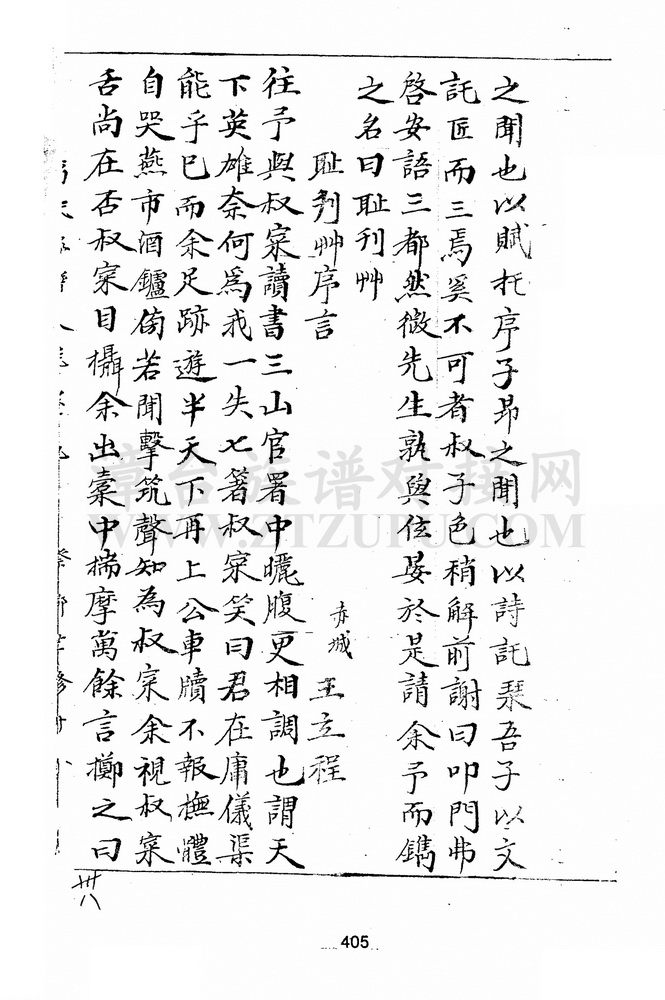 之聞也以賦托序子昴之聞也以詩託琹吾子以文
託匠而三焉奚不可者叔子色稍解前謝曰叩門弗
啓安語三都然微先生孰與位晏於是請余予而鐫
之名曰耻刋艸
耻刋艸序言
赤城 王立程
往予與叔寀讀書三山官署中曬腹更相調也謂天
下英雄奈何為我一失匕箸叔寀笑曰君在庸儀渠
能乎巳而余足跡遊半天下再上公車牘不報撫體
自哭燕市酒鑪傍若聞擊筑聲知為叔寀余視叔寀
舌尚在否叔寀目攝余出橐中揣摩萬餘言擲之曰
卅八
405
章台族谱对接网
WWW.ZTZUPU.COM